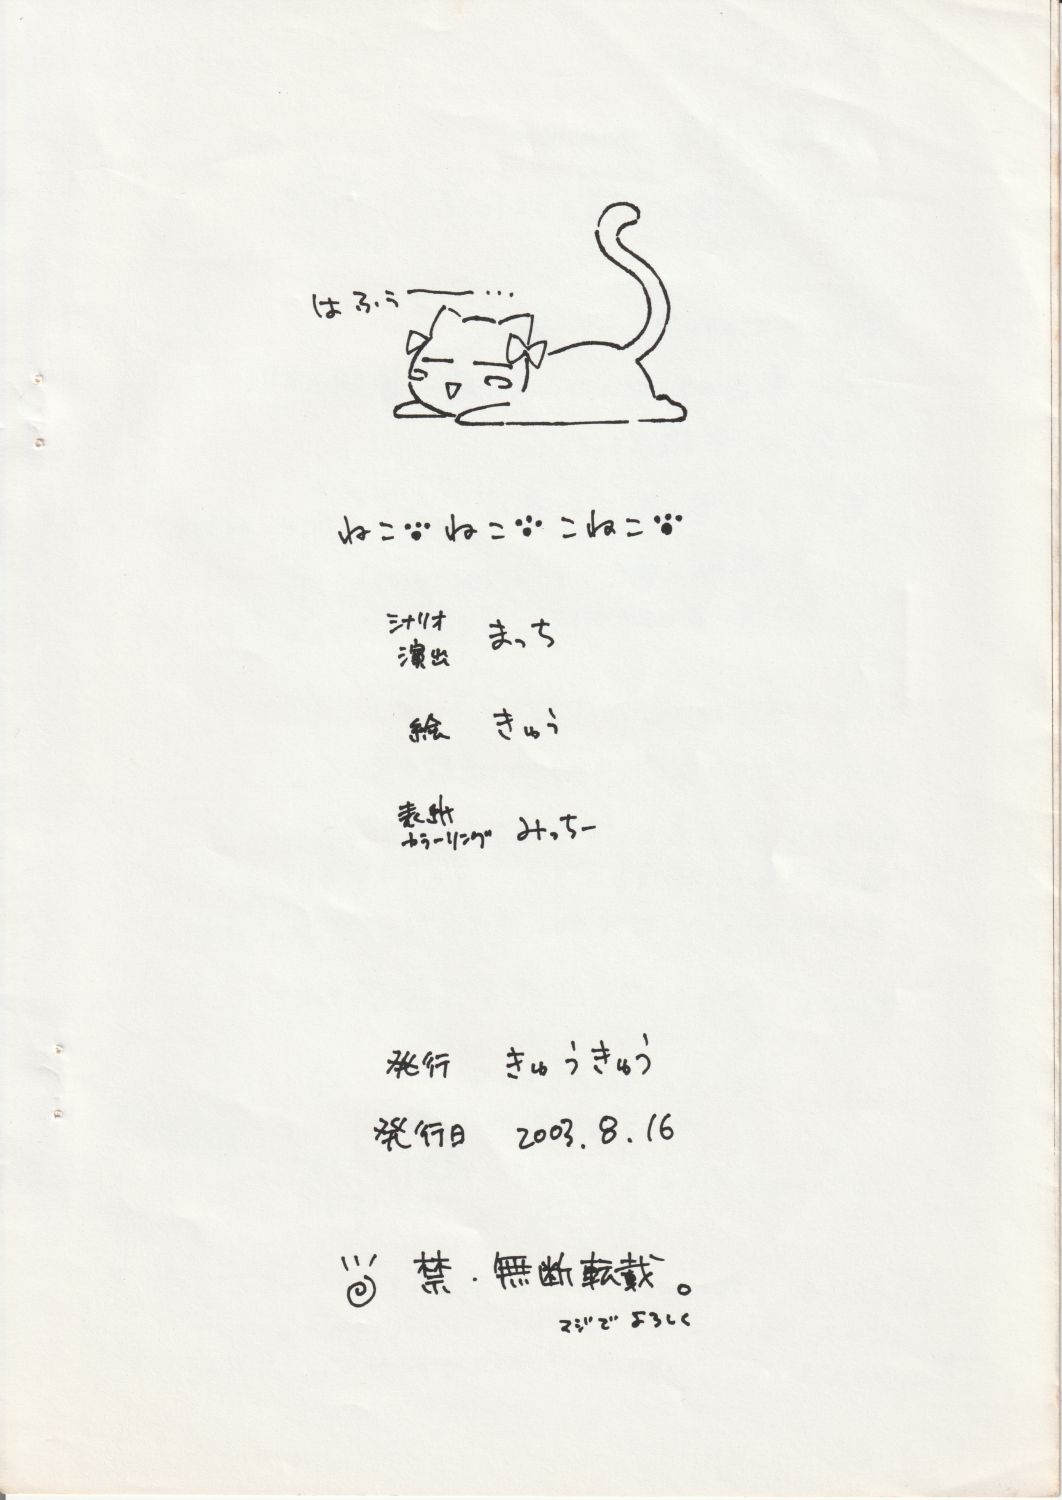 はふぅー…
ねこ ねこ こねこ
シナリオ
演出 まっち
絵 きゅう
表紙
カラーリング みっちー
発行 きゅうきゅう
発行日 2003.8.16
禁・無断転載。
マジでよろしく